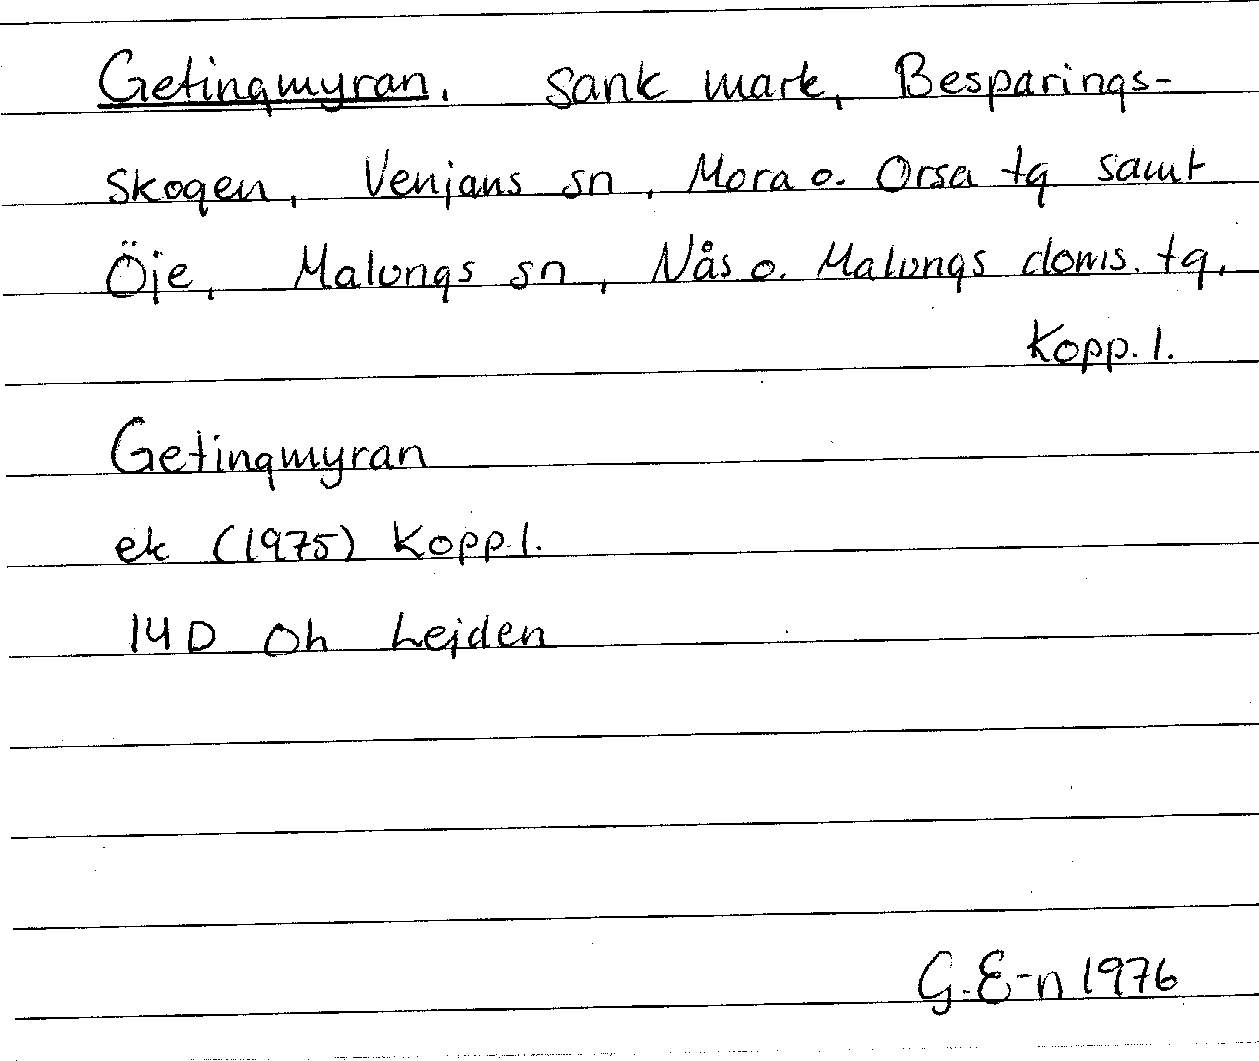 Getingmyran. Sank mark, Besparings-
skogen, Venjans sn, Mora o. Orsa tg samt
Öje, Malungs sn, Nås o. Malungs doms. tg.
Kopp. l.
Getingmyran
ek (1975) Kopp. l.
14D Oh Lejden
G.E-n 1976